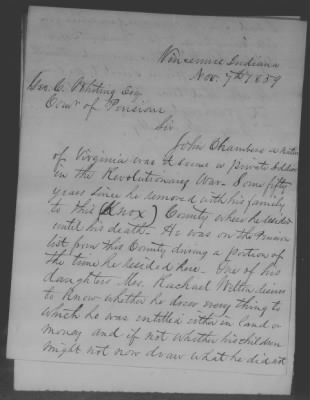 Vincennes Indiana
Nov. 7th 1859
Geo. C. Whiting Esq
Comr of Pensions
Sir
John Chambers a native
of Virginia was it seems a private Soldier
in the Revolutionary War. Some fifty
years since he removed with his family
to this (Knox) County where he resided
until his death. He was on the Pension
list from this County during a portion of
the time he resided here. One of his
daughters Mrs. Rachael Welton desires
to know whether he drew every thing to
which he was entitled either in land or
money and if not whether his children
might not now draw what he did not